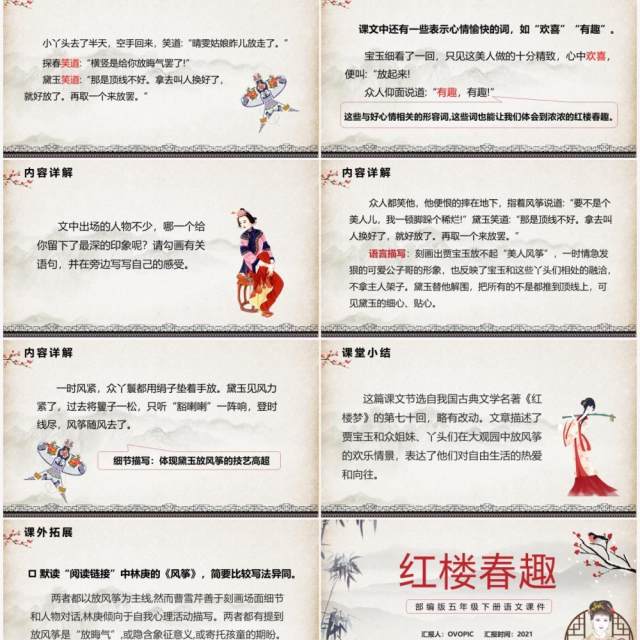 小丫头去了半天，空手回来，笑道：“晴雯姑娘昨儿放走了。”
探春笑道：“横竖是给你放晦气罢了！”
黛玉笑道：“那是顶线不好。拿去叫人换好了，
就好放了。再取一个来放罢。”
课文中还有一些表示心情愉快的词，如“欢喜”“有趣”。
宝玉细看了一回，只见这美人做的十分精致，心中欢喜，
便叫：“放起来！
众人仰面说道：“有趣，有趣！”
这些与好心情相关的形容词，这些词也能让我们体会到浓浓的红楼春趣。
内容详解
文中出场的人物不少，哪一个给
你留下了最深的印象呢？请勾画有关
语句，并在旁边写写自己的感受。
众人都笑他，他便恨的摔在地下，指着风筝说道：“要不是个
美人儿，我一顿脚跺个稀烂！”黛玉笑道：“那是顶线不好。拿去叫
人换好了，就好放了。再取一个来放罢。”
语言描写：刻画出贾宝玉放不起“美人风筝”，一时情急发
狠的可爱公子哥的形象，也反映了宝玉和这些丫头们相处的融洽，
不拿主人架子。黛玉替他解围，把所有的不是都推到顶线上，可
见黛玉的细心、贴心。
内容详解
一时风紧，众丫鬟都用绢子垫着手放。黛玉见风力
紧了，过去将籰子一松，只听“豁喇喇”一阵响，登时
线尽，风筝随风去了。
细节描写：体现黛玉放风筝的技艺高超
课堂小结
这篇课文节选自我国古典文学名著《红
楼梦》的第七十回，略有改动。文章描述了
贾宝玉和众姐妹、丫头们在大观园中放风筝
的欢乐情景，表达了他们对自由生活的热爱
和向往。
课外拓展
默读“阅读链接”中林庚的《风筝》，简要比较写法异同。
两者都以放风筝为主线,然而曹雪芹善于刻画场面细节
和人物对话,林庚倾向于自我心理活动描写。两者都有提到
放风筝是“放晦气”,或隐含象征意义,或寄托孩童的期盼。
红楼春趣
部编版五年级下册语文课件
汇报人：OVOPIC
汇报时间：2021